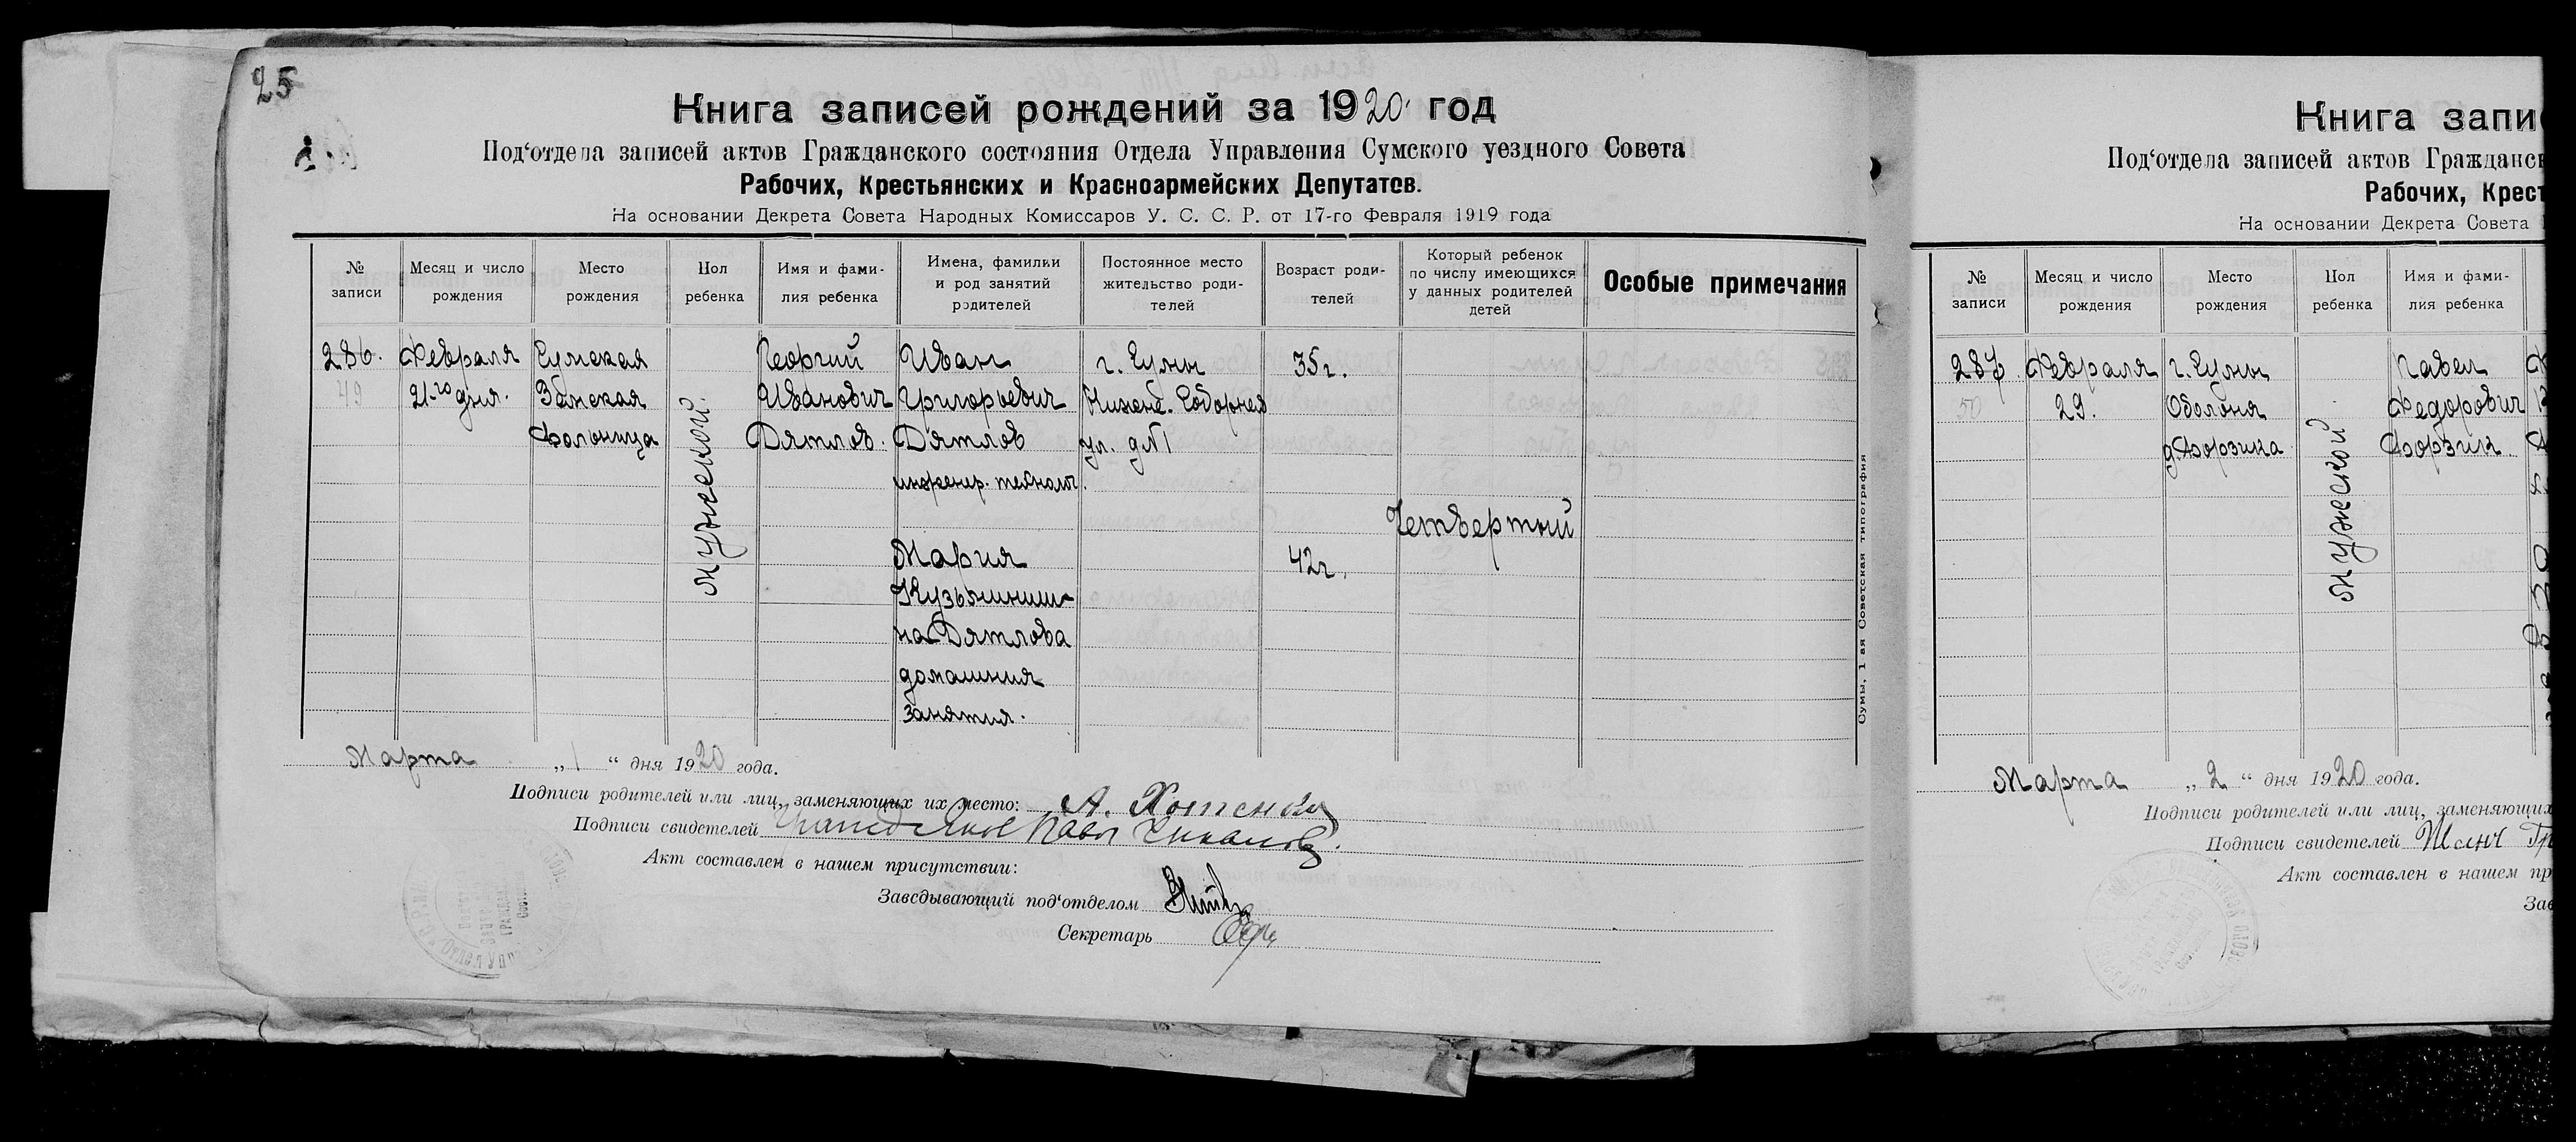 25
Книга записей рождений за 1920 год
Под‘отдела записей актов Гражданского состояния Отдела Управления Сумского уездного Совета
Рабочих, Крестьянских и Красноармейских Депутатов.
На основании Декрета Совета Народных Комиссаров У. С. С. Р. от 17-го Февраля 1919 года
№ записи
Месяц и число рождения
Место рождения
Пол ребенка
Имя и фами-
лия ребенка
Имена, фамилии
и род занятий
родителей
Постоянное место
жительство роди-
телей
Возраст роди-
телей
Который ребенок
по числу имеющихся
у данных родителей
детей
Особые примечания
286.
49
Февраля
21-го дня.
Сумская
Земская
больница
мужеской.
Георгий
Иванович
Дятлов.
Иван
Григорьевич
Дятлов
инженер. технолог.
Мария
Кузьминиш-
на Дятлова
домашния
занятия.
г. Сумы
Нижне. Соборная
ул. д№1
35г.
42г.
Четвертый
Сумы, 1-ая Советская типография
Марта „1“ дня 1920 года.
Подписи родителей или лиц, заменяющих их место: А.
Подписи свидетелей
Акт составлен в нашем присутствии:
Заведывающий под‘отделом
Секретарь
Книга запис
Под‘отдела записей актов Гражданск
Рабочих, Крест
На основании Декрета Совета
№ записи
Месяц и число рождения
Место рождения
Пол ребенка
Имя и фами-
лия ребенка
287
50
Февраля
29.
г. Сумы
Оболоня
д. Форзика
мужеской
Павел
Федорович
Форзик.
Марта „2“ дня 1920 года.
Подписи родителей или лиц, заменяющих
Подписи свидетелей
Акт составлен в нашем пр
Зав